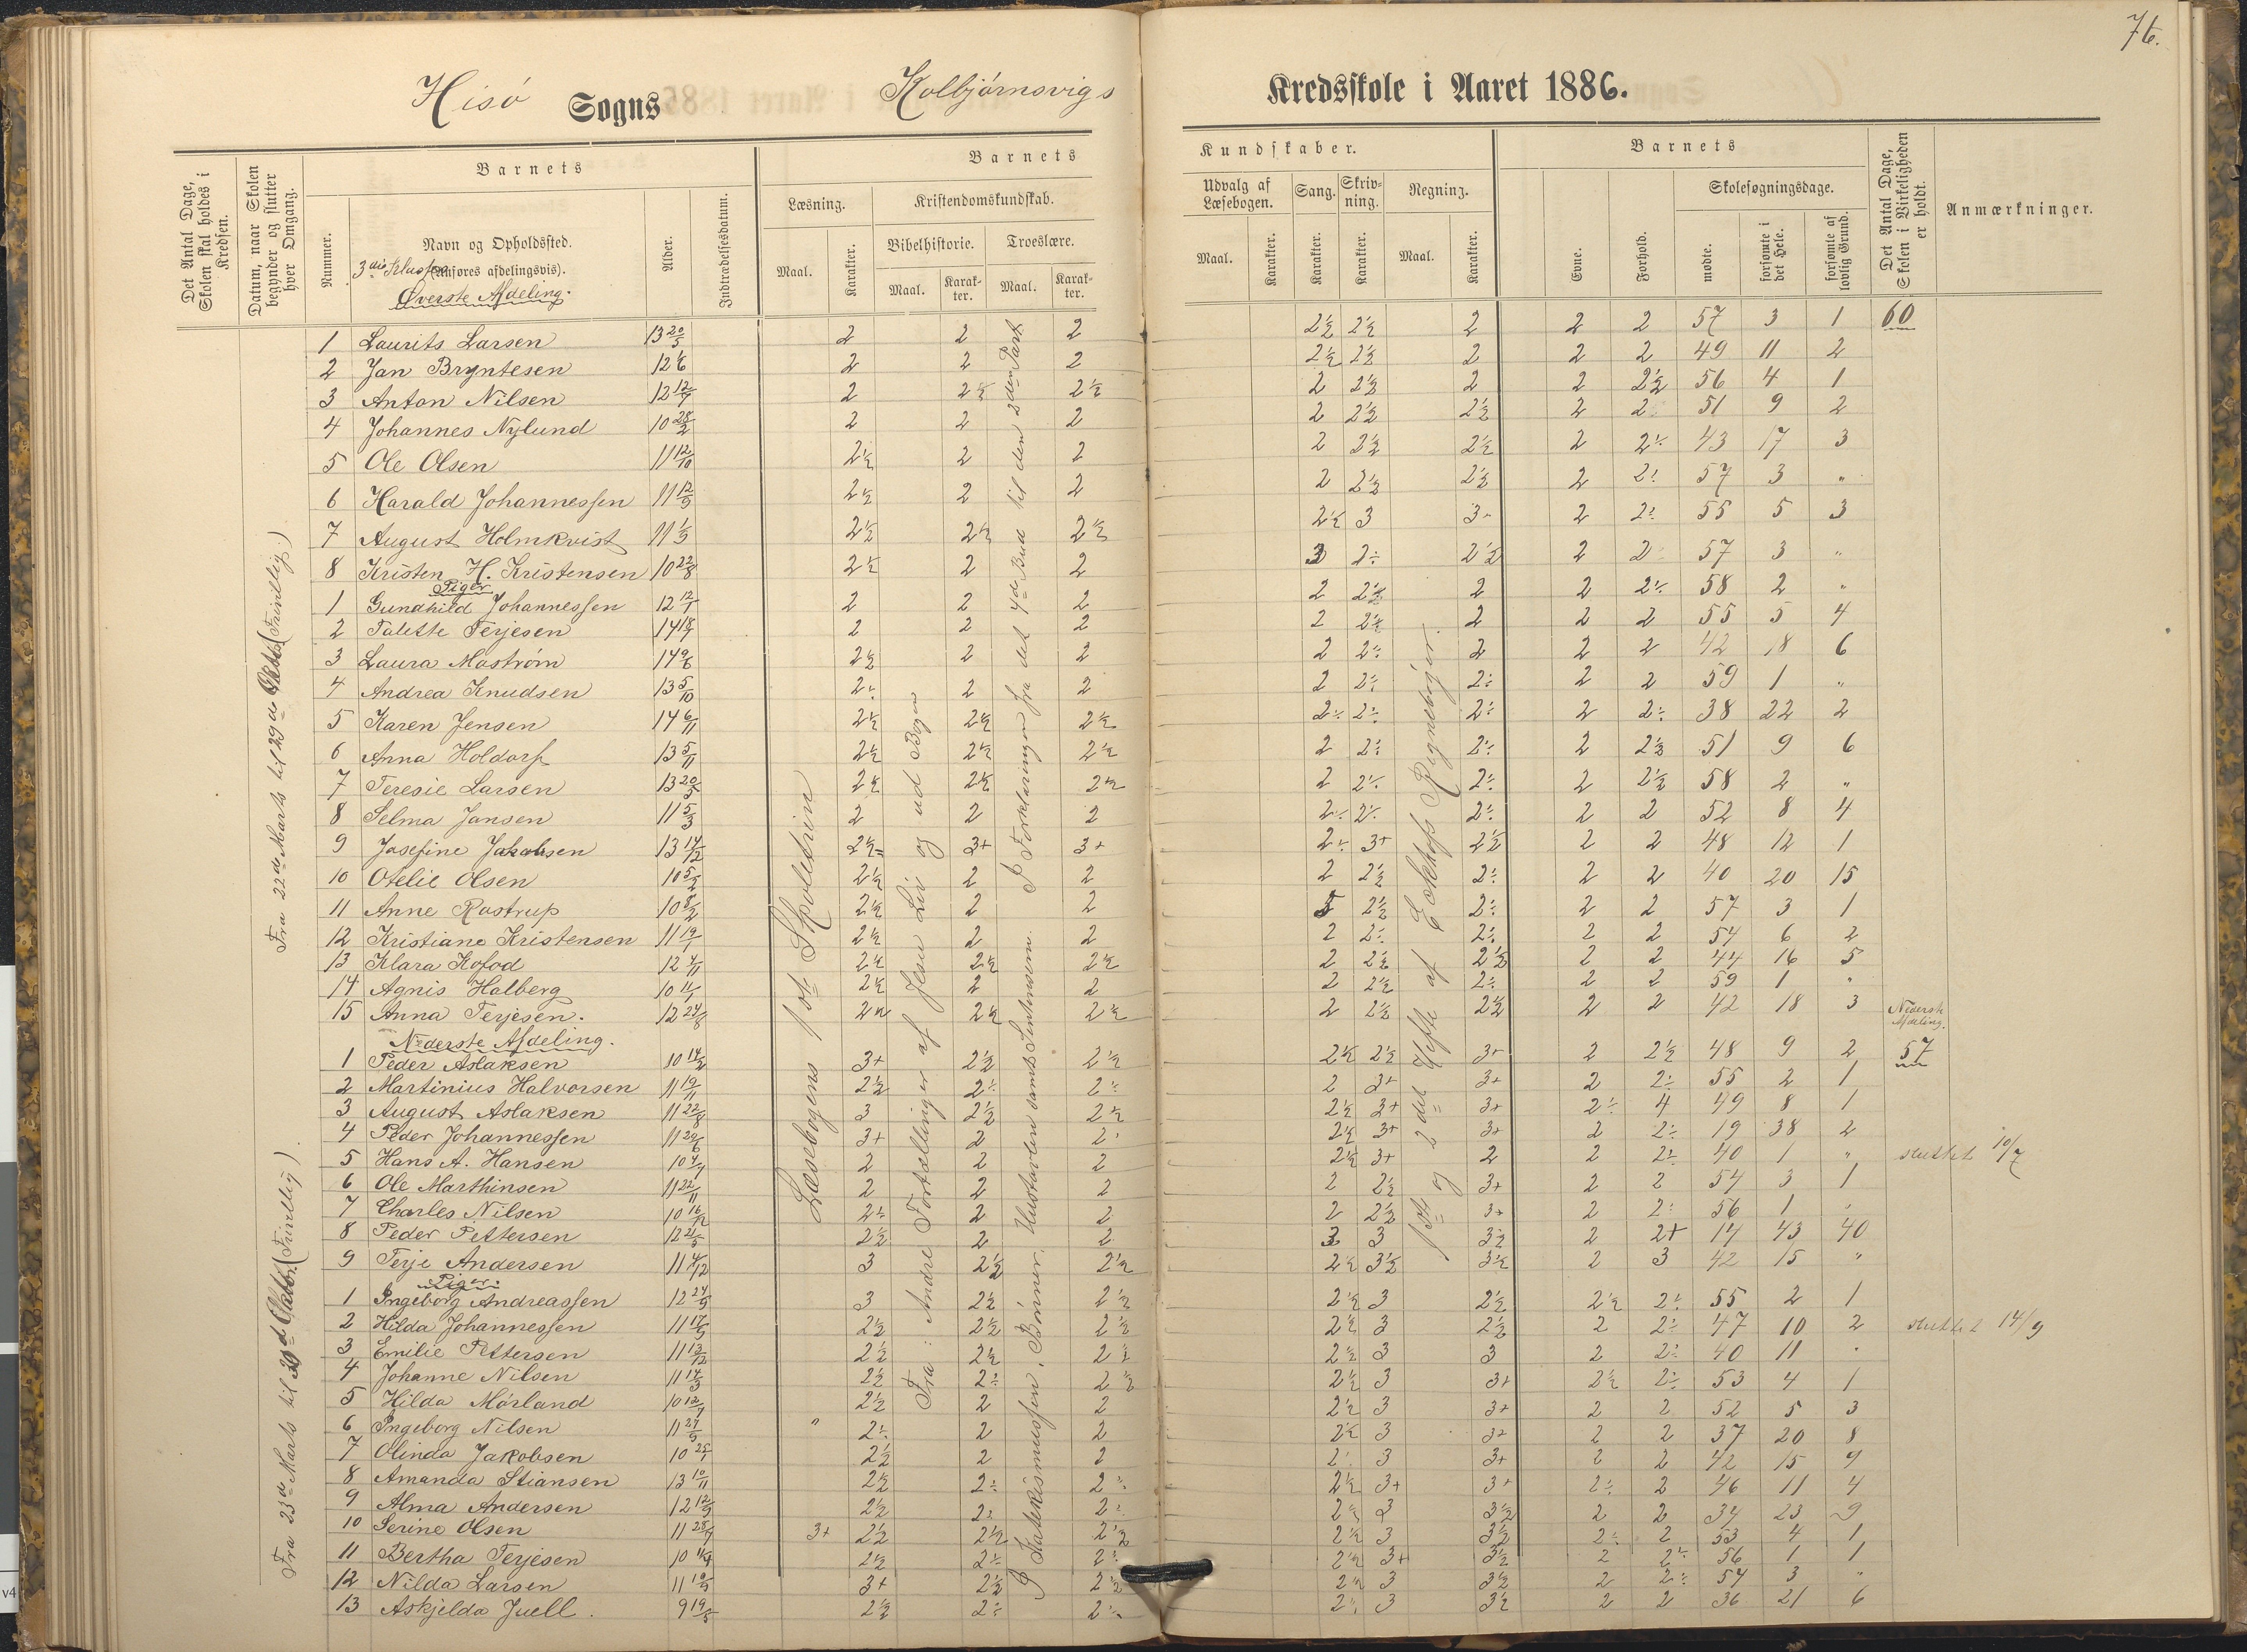 76.
Hisö Sogns Kolbjörnsvigs Kredsskole i Aaret 1886.
Det Antal Dage, Skolen skal holdes i Kredsen.
Datum, naar Skolen begynder og slutter hver Omgang.
Nummer.
Barnets
Navn og Opholdssted.
(Anføres afdelingsvis).
3die Klasse
Øverste Afdeling.
Alder.
Indtrædelsesdatum.
Barnets Kundskaber.
Læsning.
Maal.
Karakter.
Kristendomskundskab.
Bibelhistorie.
Maal.
Karakter.
Troeslære.
Maal.
Karakter.
Udvalg af Læsebogen.
Maal.
Karakter.
Sang.
Karakter.
Skrivning.
Karakter.
Regning.
Maal.
Karakter.
Barnets
Evne.
Forhold.
Skolesøgningsdage.
mødte.
forsømte i det Hele.
forsømte af lovlig Grund.
Det Antal Dage, Skolen i Virkeligheden er holdt.
Anmærkninger.
1 Laurits Larsen 13 20/5 2 2 2 2½ 2½ 2 2 2 57 3 1 60
2 Jan Bryntesen 12 1/6 2 2 2 2½ 2½ 2 2 2 49 11 2
3 Anton Nilsen 2 2½ 2½ 2 2½ 2 2 2½ 56 4 1
4 Johannes Nylund 10 28/2 2 2 2 2 2½ 2½ 2 2 51 9 2
5 Ole Olsen 11 12/10 2½ 2 2 2 2½ 2½ 2 2÷ 43 17 3
6 Harald Johannessen 11 12/9 2½ 2 2 2 2½ 2½ 2 2÷ 57 3 "
7 August Holmkvist 2½ 2½ 2½ 2½ 3 3+ 2 2÷ 55 5 3
8 Kristen H. Kristensen 10 22/8 2½ 2 2 3 2÷ 2½ 2 2 57 3 "
Piger
1 Gundhild Johannessen 12 12/1 2 2 2 2 2½ 2 2 2÷ 58 2 "
2 Talette Terjesen 14 2 2 2 2 2½ 2 2 2 55 5 4
3 Laura Moström 14 9/6 2½ 2 2 2 2÷ 2 2 2 42 18 6
4 Andrea Knudsen 13 5/10 2÷ 2 2 2 2÷ 2÷ 2 2 59 1 "
5 Karen Jensen 14 6/11 2½ 2½ 2½ 2÷ 2÷ 2÷ 2 2÷ 38 22 2
6 Anna Holdorf 13 5/11 2½ 2½ 2½ 2 2÷ 2÷ 2 2½ 51 9 6
7 Teresie Larsen 2½ 2½ 2½ 2 2÷ 2÷ 2 2½ 58 2 "
8 Selma Jansen 11 5/3 2 2 2 2÷ 2÷ 2÷ 2 2 52 8 4
9 Josefine Jakobsen 13 14/12 2½ 3+ 3+ 2÷ 3+ 2½ 2 2 48 12 1
10 Otelie Olsen 10 5/2 2½ 2 2 2 2½ 2÷ 2 2 40 20 15
11 Anne Rostrup 10 8/2 2½ 2 2 5 2½ 2÷ 2 2 57 3 1
12 Kristiane Kristensen 11 19/1 2½ 2 2 2 2÷ 2÷ 2 2 54 6 2
13 Klara Kofod 12 4/11 2½ 2½ 2½ 2 2½ 2½ 2 2 44 16 5
14 Agnis Halberg 2½ 2 2 2 2½ 2÷ 2 2 59 1 "
15 Anna Terjesen. 12 24/8 2½ 2½ 2½ 2 2½ 2½ 2 2 42 18 3
Nederste Afdeling.
Nederste Afdeling.
1 Peder Aslaksen 3+ 2½ 2½ 2½ 2½ 3+ 2 2½ 48 9 2 57
2 Martinius Halvorsen 11 19/11 2½ 2÷ 2÷ 2 3+ 3+ 2 2÷ 55 2 1
3 August Aslaksen 11 22/8 3 2½ 2½ 2½ 3+ 3+ 2÷ 4 49 8 1
4 Peder Johannessen 11 29/6 3+ 2 2÷ 2½ 3+ 3+ 2 2÷ 19 38 2
5 Hans A. Hansen 2 2 2 2½ 3+ 2 2 2÷ 40 1 " sluttet 10/7
6 Ole Marthinsen 11 22/11 2 2 2 2 2½ 3+ 2 2 54 3 1
7 Charles Nilsen 10 16/12 2÷ 2 2 2 2½ 3+ 2 2÷ 56 1 "
8 Peder Pettersen 2½ 2 2 3 3 3½ 2 2+ 14 43 40
9 Terje Andersen 3 2½ 2½ 2½ 3½ 3½ 2 3 42 15 "
Piger.
1 Ingeborg Andreassen 12 24/9 3 2½ 2½ 2½ 3 2½ 2½ 2÷ 55 2 1
2 Hilda Johannessen 2½ 2½ 2½ 2½ 3 2½ 2 2÷ 47 10 2 sluttet 14/9
3 Emilie Pettersen 11 13/12 2½ 2½ 2½ 2½ 3 3 2 2÷ 40 11 "
4 Johanne Nilsen 11 14/3 2½ 2÷ 2½ 2½ 3 3+ 2½ 2÷ 53 4 1
5 Hilda Mörland 2½ 2 2 2½ 3 3+ 2 2 52 5 3
6 Ingeborg Nilsen " 2÷ 2 2 2½ 3 3+ 2 2 37 20 8
7 Olinda Jakobsen 2½ 2 2 2÷ 3 3+ 2 2 42 15 9
8 Amanda Stiansen 13 10/11 2½ 2÷ 2÷ 2½ 3+ 3+ 2÷ 2 46 11 4
9 Alma Andersen 12 12/9 2½ 2÷ 2÷ 2½ 3 3½ 2 2 34 23 9
10 Serine Olsen 3+ 2½ 2½ 2½ 2½ 3 3½ 2÷ 2 53 4 1
11 Bertha Terjesen 2½ 2÷ 2÷ 2½ 3+ 3½ 2 2÷ 56 1 1
12 Nilda Larsen 3+ 2½ 2½ 2½ 3 3½ 2 2÷ 54 3 "
13 Askjelda Juell. 9 19/5 2½ 2÷ 2÷ 2÷ 3 3½ 2 2 36 21 6
Fra 22de Marts til 29de Oktbr. (Trinellig)
Fra 23de Marts til 30d Oktbr. (Trinellig)
Læsebogens 1ste Skoletrin
Fra: Andre Fortællinger af Jesu Liv og ud Bogen
I Forklaringen fra det 4de Bud til den 2den Part
I Katekismussen, Bönner, Hustavlen samt
1ste og 2det Hefte af Eckhoffs Regneböger.